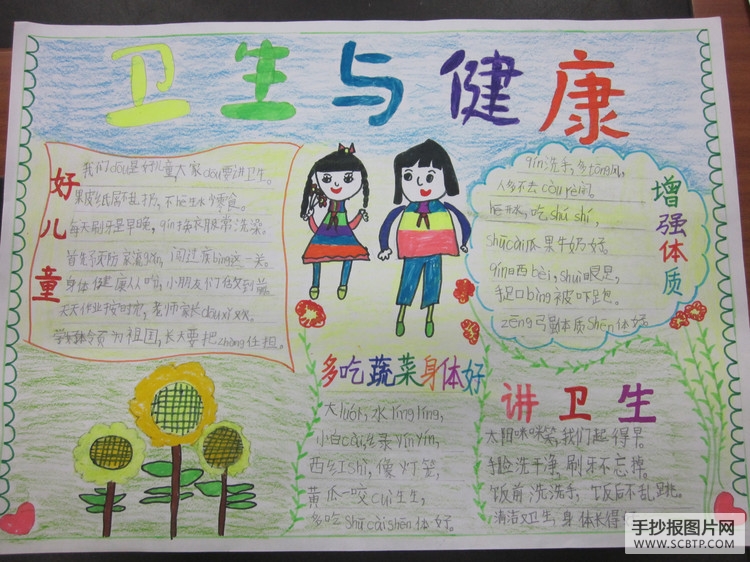 卫生与健康
好儿童
我们dōu是好儿童大家dōu要讲卫生。
果皮纸屑不乱扔,不hē生水少零食。
每天刷牙早晚,qín换衣服常洗澡。
身体健康人人
天天作业按时完,老师家长dōu
为祖国,长大要把zhòng任担。
增强体质
qín洗手,多tōng风,
人多不去còu rè
hē开水,吃shú shí,
shū cài瓜果牛奶好。
qín晒bèi,shuì眠足,
手足口bìng被吓跑。
zēng强体质shēn体好。
多吃蔬菜身体好
大luó bo,水líng líng,
小白cài,绿yíng yíng,
西红shì,像灯笼,
黄瓜一咬cuì生生,
多吃shū cài shēn体好。
讲卫生
太阳咪咪笑,我们起得早。
手脸洗干净,刷牙不忘掉。
饭前洗洗手,饭后不乱跳。
清洁又卫生,身体长得
手抄报图片网
WWW.SCBTP.COM